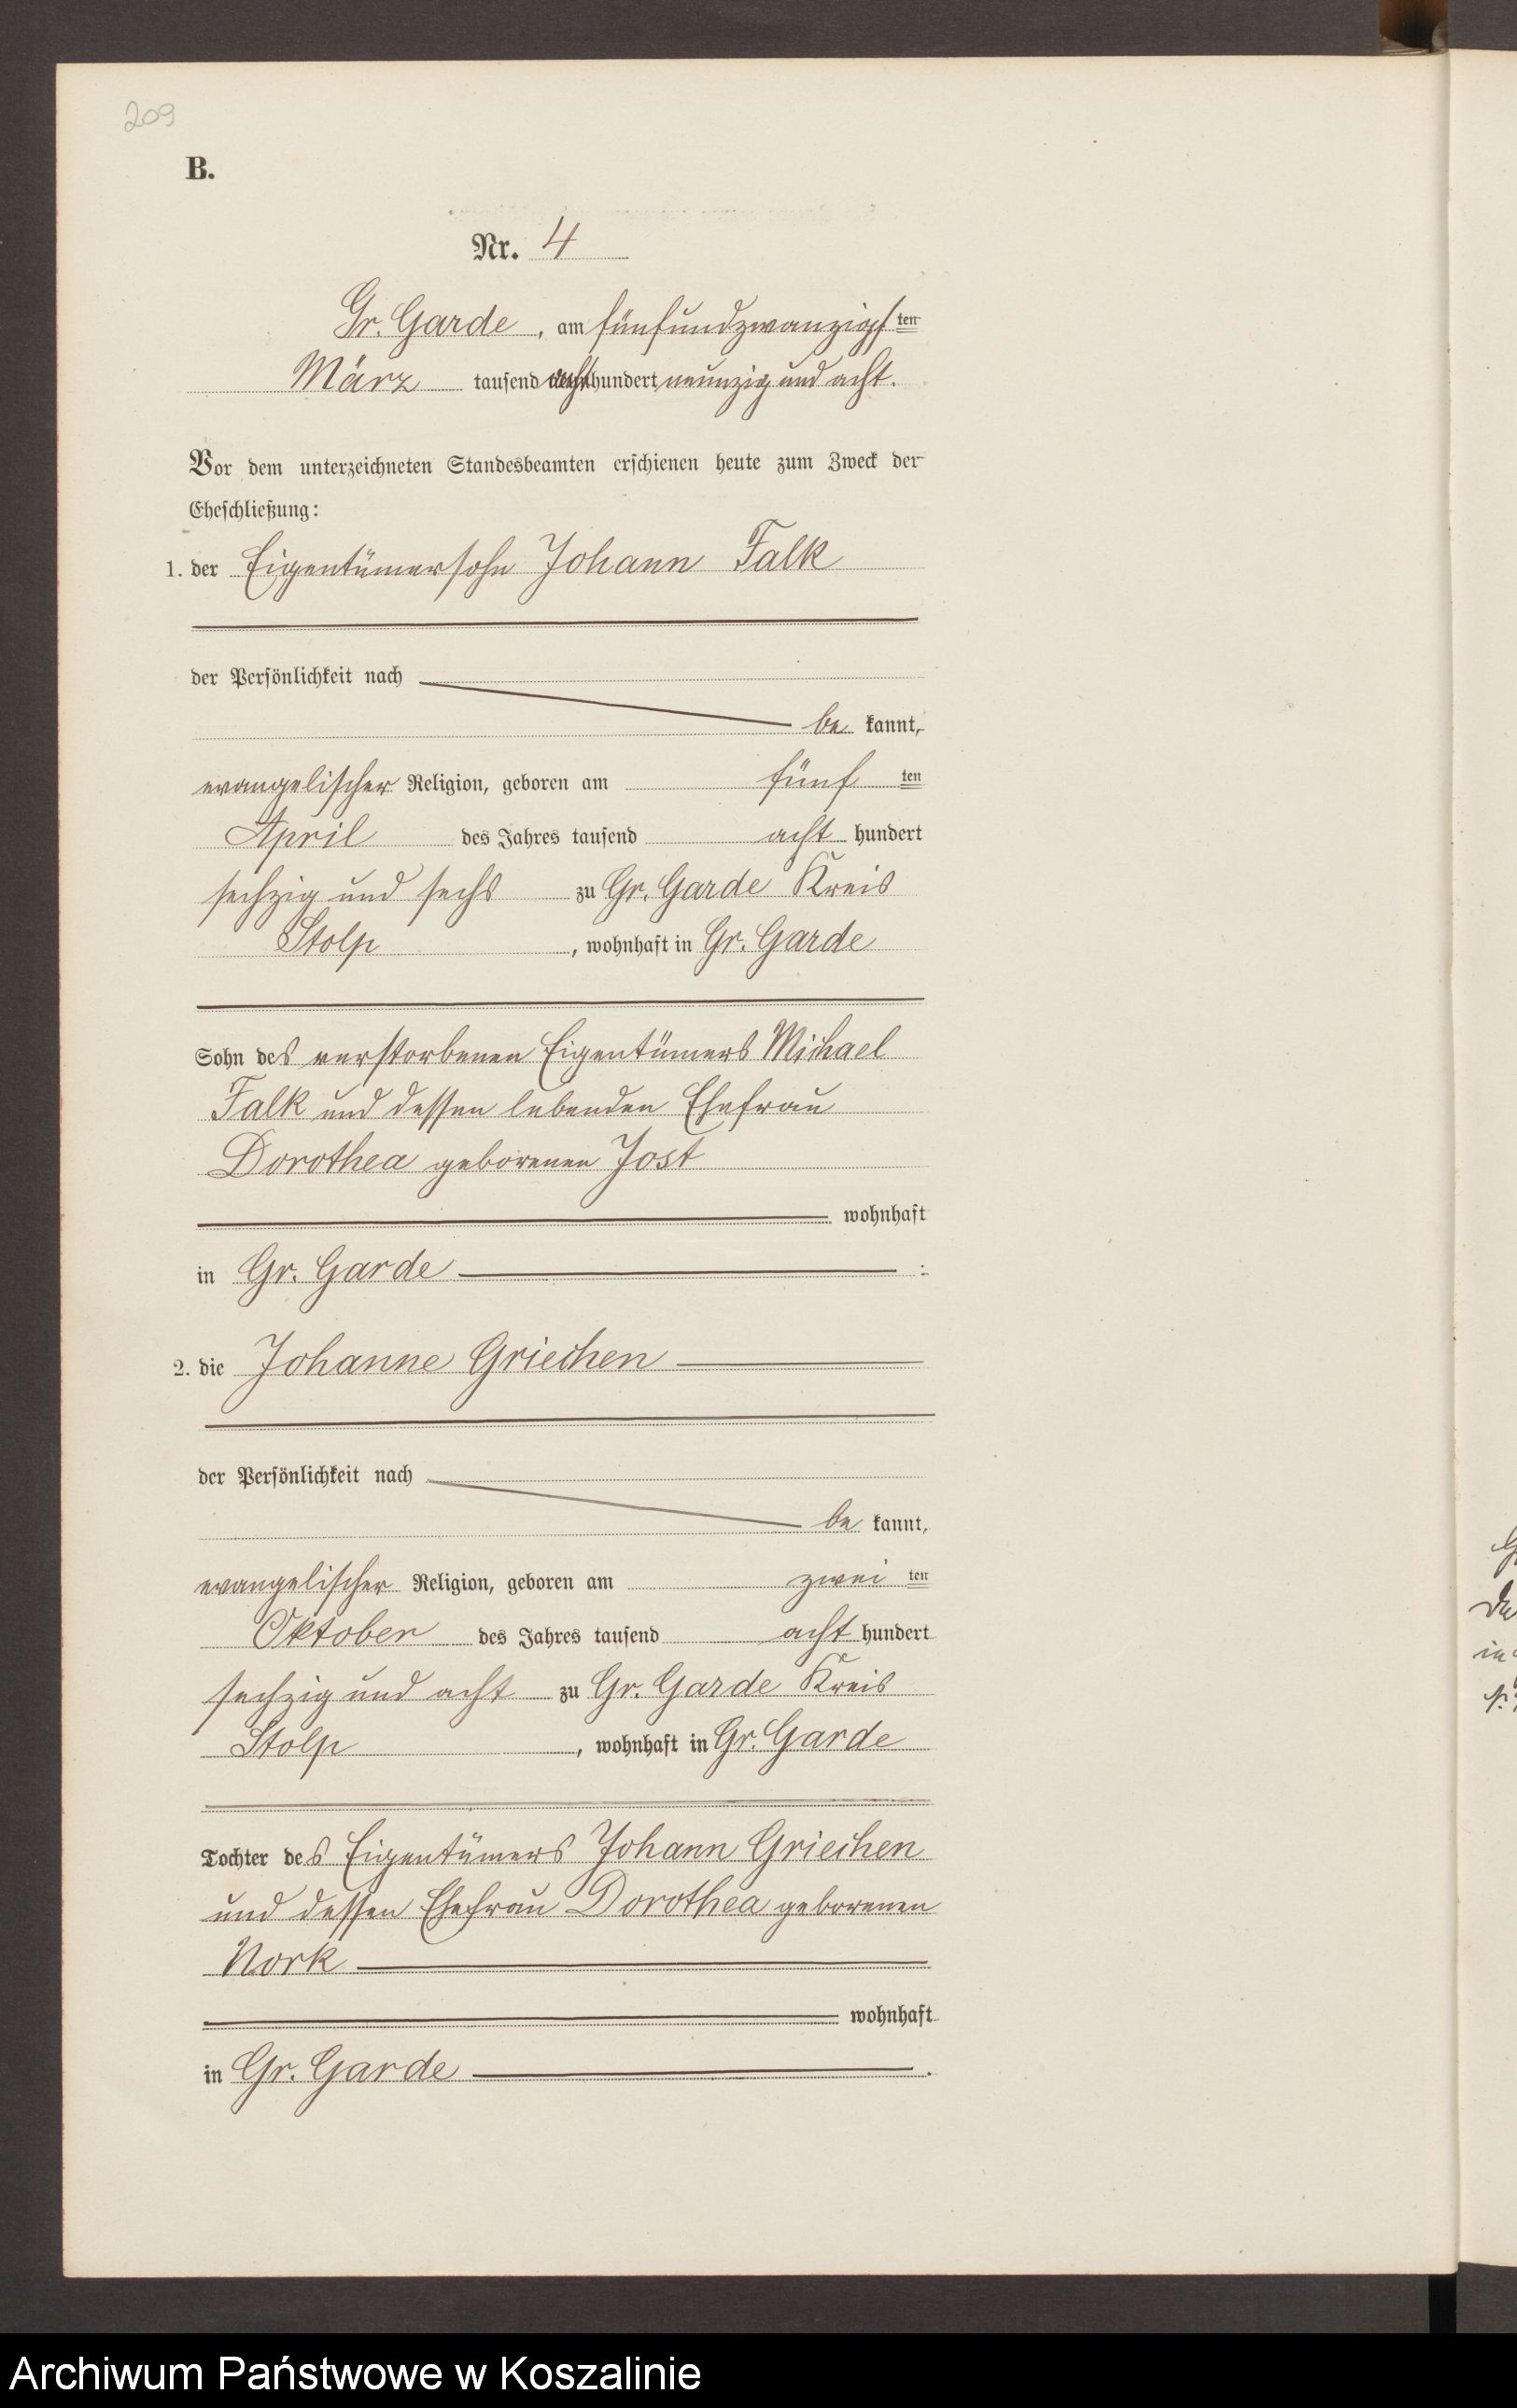 209
B.
Nr. 4
Gr. Garde, am fünfundzwanzigsten
März tausend achthundert neunzig und acht.
Vor dem unterzeichneten Standesbeamten erschienen heute zum Zweck der
Eheschließung:
1. der Eigentümersohn Johann Falk
der Persönlichkeit nach
be kannt,
evangelischer Religion, geboren am fünf ten
April des Jahres tausend acht hundert
sechzig und sechs zu Gr. Garde Kreis
Stolp, wohnhaft in Gr. Garde
Sohn des verstorbenen Eigentümers Michael
Falk und dessen lebenden Ehefrau
Dorothea geborenen Jost
wohnhaft
in Gr. Garde :
2. die Johanne Griechen
der Persönlichkeit nach
be kannt,
evangelischer Religion, geboren am zwei ten
Oktober des Jahres tausend acht hundert
sechzig und acht zu Gr. Garde Kreis
Stolp, wohnhaft in Gr. Garde
Tochter des Eigentümers Johann Griechen
und dessen Ehefrau Dorothea geborenen
Nork
wohnhaft
in Gr. Garde .
Archiwum Państwowe w Koszalinie